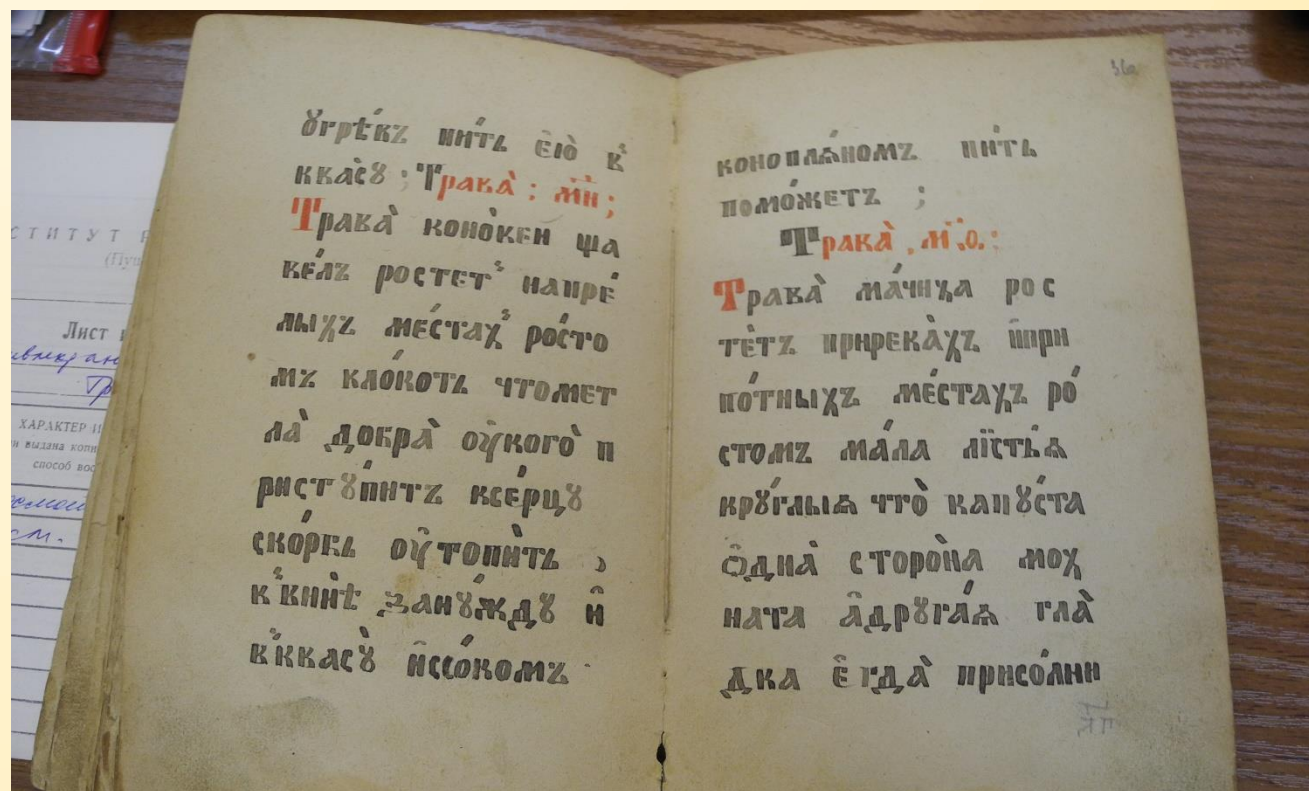 СТИТУТ Р
(Пуш
Лист и
ХАРАКТЕР И
и выдана копи
способ вос
см.
ꙋгрѣвъ пи́ть е̑ю̀ в̾
ква́сꙋ ; Трава̀ ; м҃и ;
Трава̀ коно́вен ща
ве́лъ ростет̾ напре́
лыхъ ме́стах̾ ро́сто
мъ кло́коть чтомет
ла̀ добра̀ оу҆кого̀ п
ристꙋ́питъ ксе́рцꙋ
ско́рбь оу҆топи́ть ,
в̾винѣ̀ занꙋ́ждꙋ и̑
в̾квасꙋ̀ и҆ссо́комъ
36
коноплѧ́номъ пи́ть
помо́жетъ ;
Трава̀ . м҃.ѳ. :
Трава̀ ма́чиха рос
тѐтъ приρека́хъ и҆при
по́тныхъ ме́стахъ ро́
стомъ ма́ла ли́стьѧ
крꙋ́глыѧ что̀ капꙋ́ста
о̑дна̀ сторо́на мох
ната а҆дрꙋга́ѧ гла̀
дка е̑гда̀ присо́лни